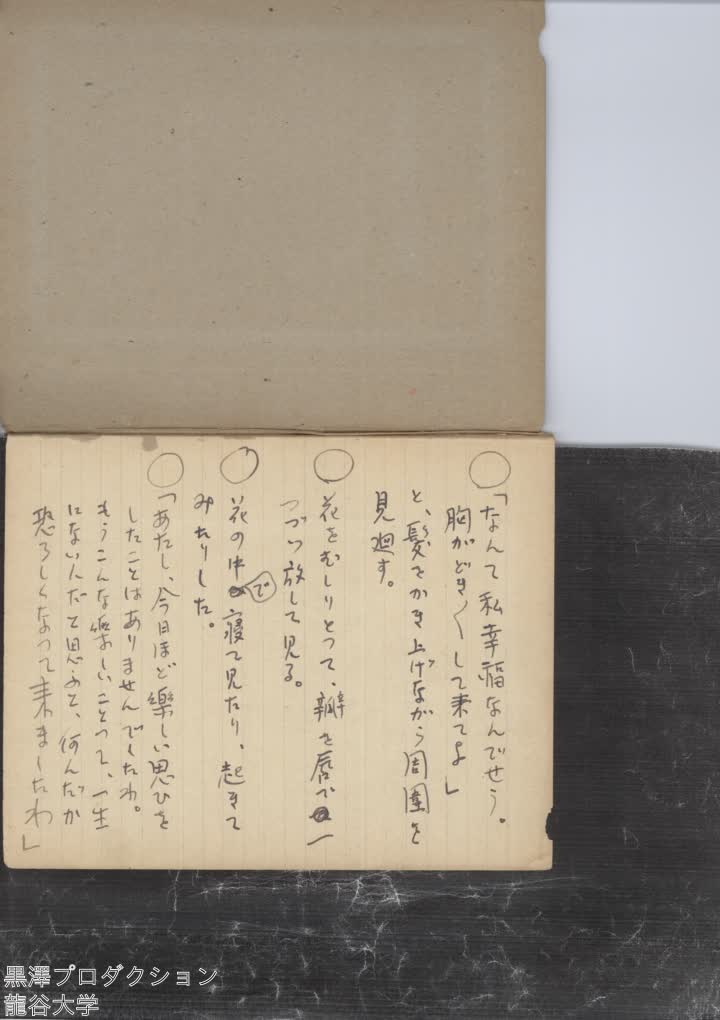 ○「なんて私幸福なんでせう。
胸がどき〱して来てよ」
と、髪をかき上げながら周囲を
見廻す。
○花をむしりとつて、瓣を唇で一
つづつ放して見る。
○花の中で寝て見たり、起きて
みたりした。
○「あたし、今日ほど樂しい思ひを
したことはありませんでしたわ。
もうこんな樂しいことつて、一生
にないんだと思ふと、何んだか
恐ろしくなつて来ましたわ」
黒澤プロダクション
龍谷大学